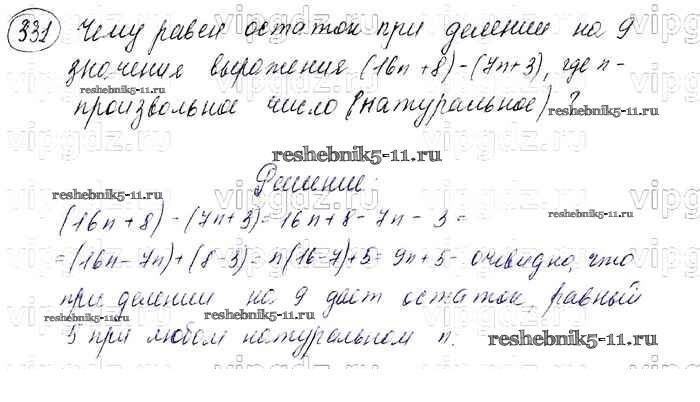 331 Чему равен остаток при делении на 9
значения выражения (16n+8)-(7n+3), где n-
произвольное число (натуральное)?
reshebnik5-11.ru
reshebnik5-11.ru
Решение:
reshebnik5-11.ru
reshebnik5-11.ru
(16n+8)-(7n+3)=16n+8-7n-3=
=(16n-7n)+(8-3)=n(16-7)+5=9n+5- очевидно, что
при делении на 9 даёт остаток, равный
5 при любом натуральном n.
reshebnik5-11.ru
reshebnik5-11.ru
vipgdz.ru